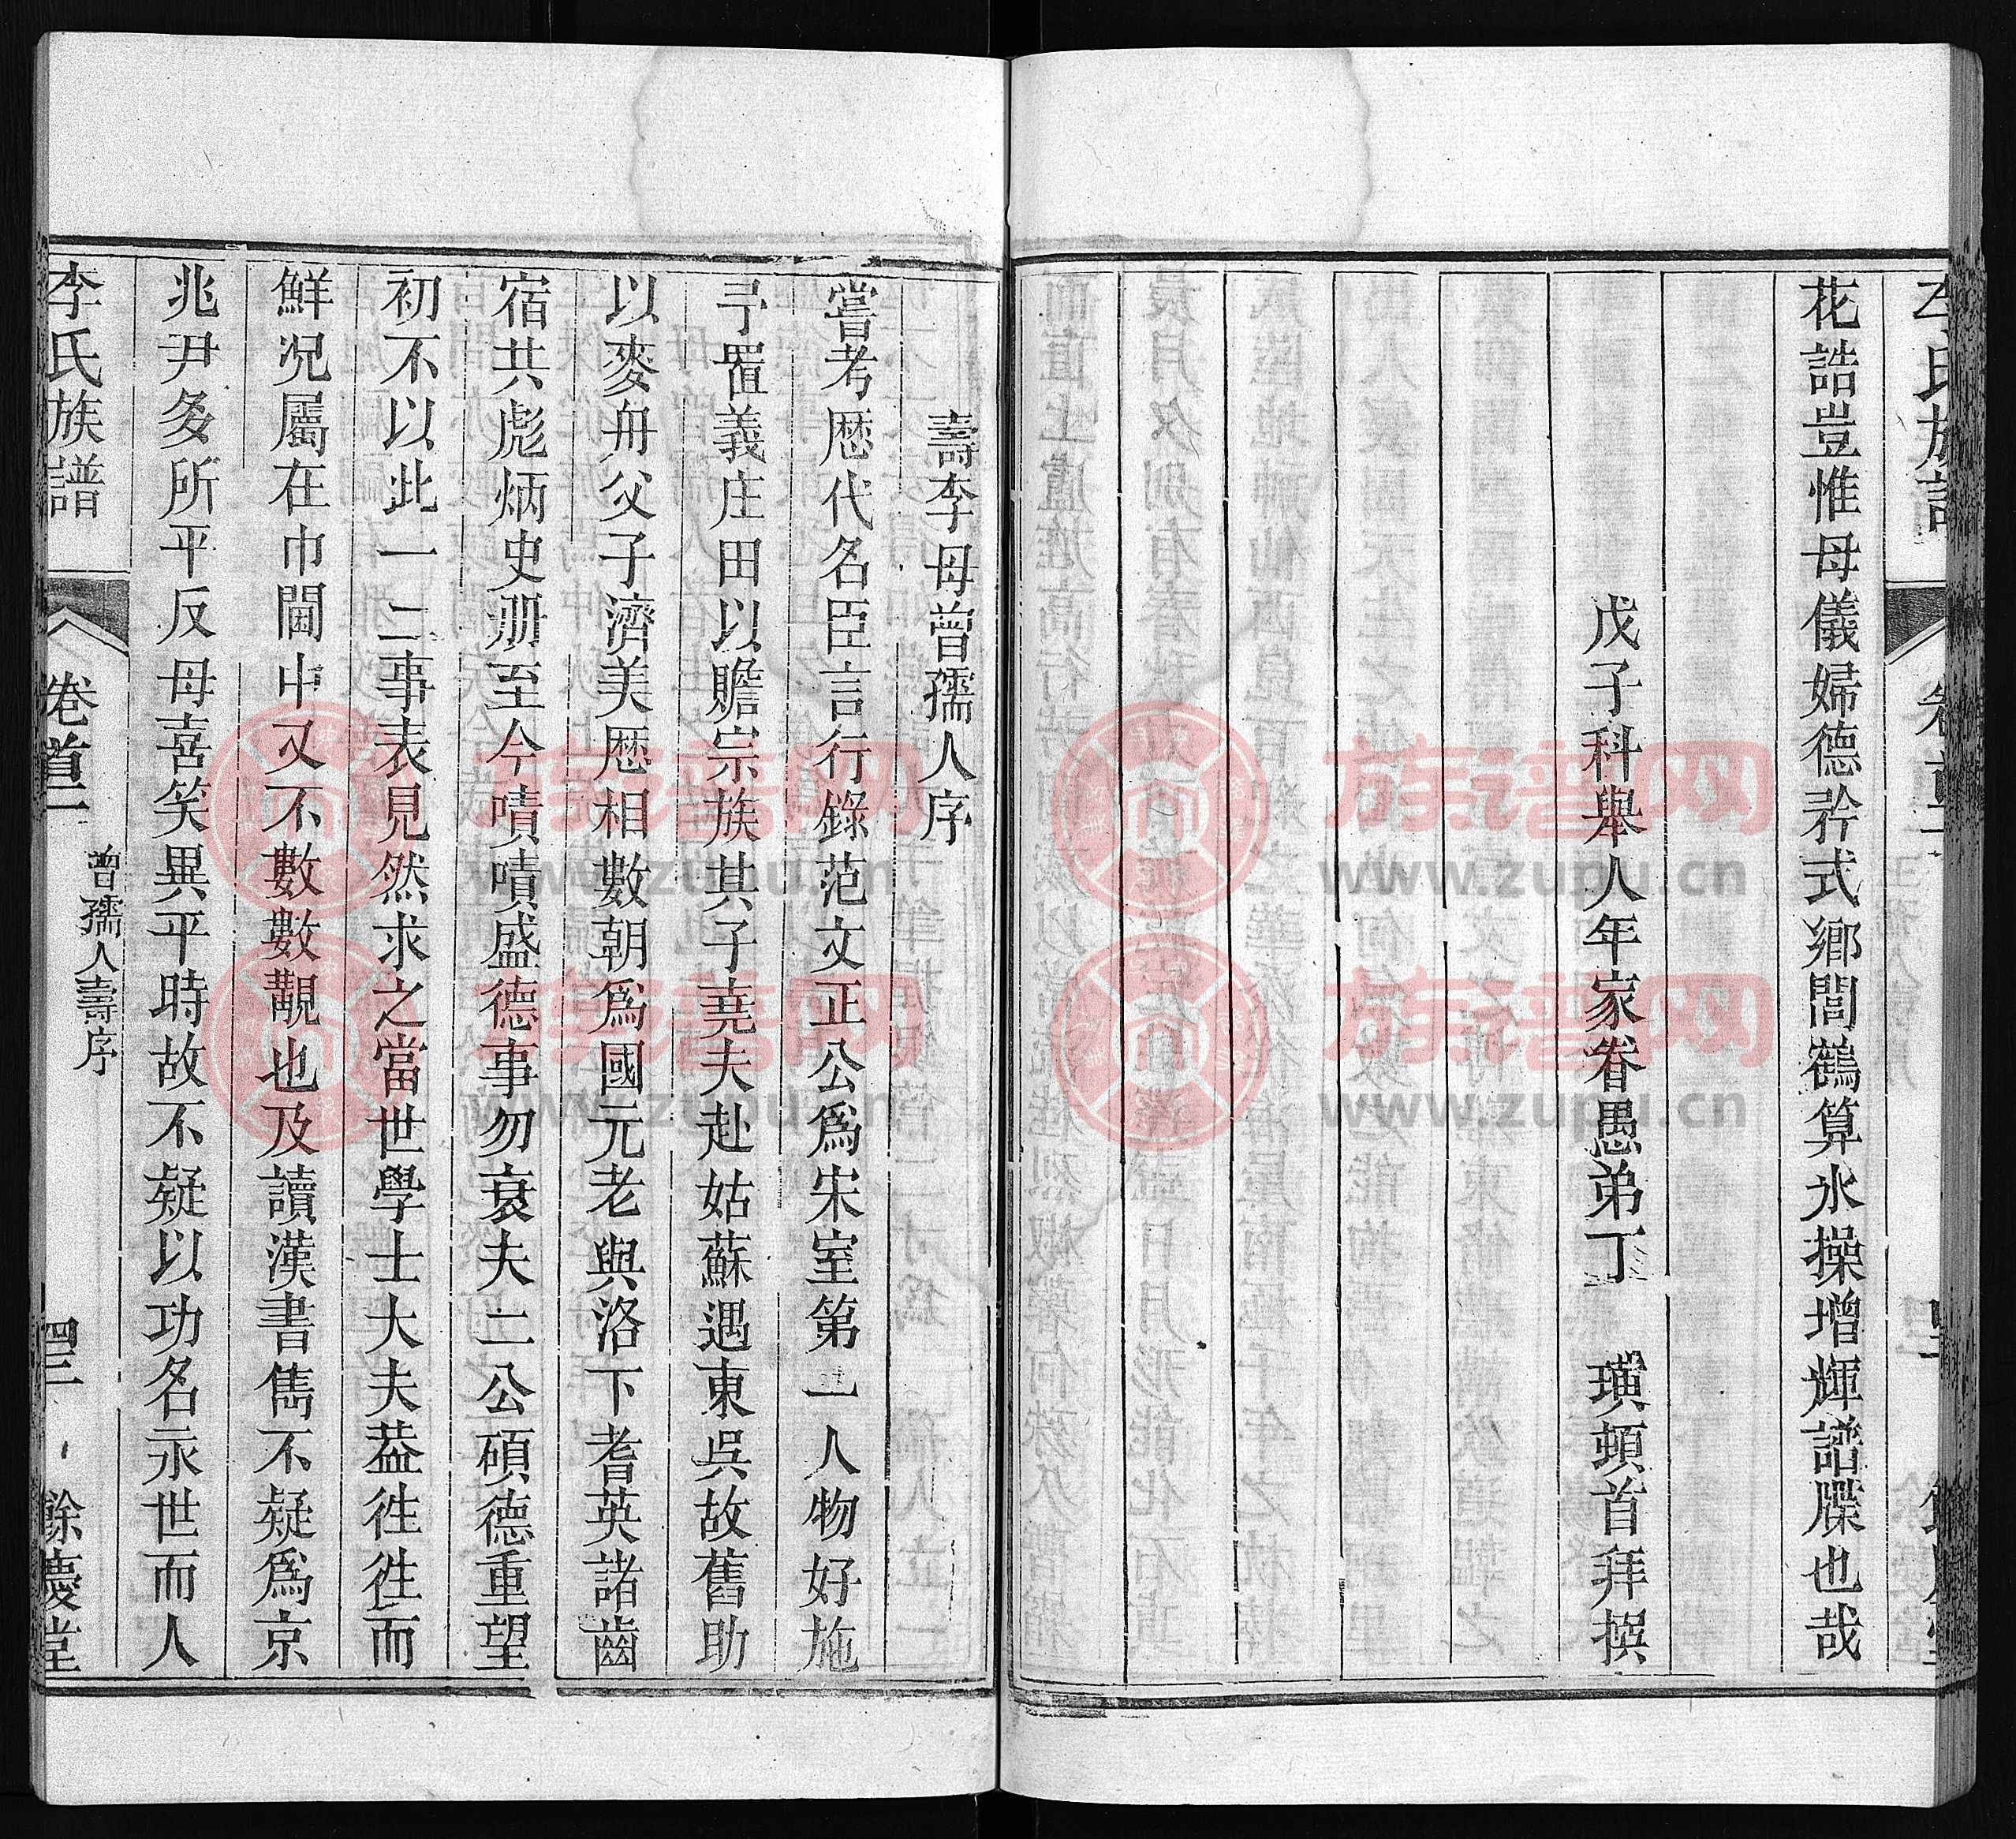 花誥豈惟母儀婦德矜式鄉閭鶴算氷操增輝譜牒也哉
戊子科舉人年家眷愚弟丁 璜頓首拜撰
壽李母曾孺人序
嘗考歴代名臣言行錄范文正公爲宋室第一人物好施
予置義庄田以贍宗族其子堯夫赴姑蘇遇東吳故舊助
以麥舟父子濟美歴相數朝爲國元老與洛下耆英諸齒
宿共彪炳史册至今嘖嘖盛德事勿衰夫二公碩德重望
初不以此一二事表見然求之當世學士大夫葢徃徃而
鮮况屬在巾閫中又不數數覯也及讀漢書雋不疑爲京
兆尹多所平反母喜笑異平時故不疑以功名永世而人
李氏族譜
卷首二
曾孺人壽序
四二
餘慶堂
族谱网
www.zupu.cn
族谱网
www.zupu.cn
族谱网
www.zupu.cn
族谱网
www.zupu.cn